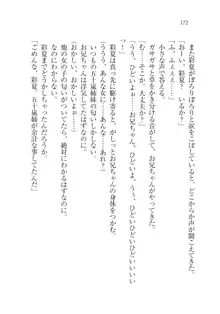 172
また彩夏がぽろりぽろりと涙をこぼしていると、どこからか声が聞こえてきた。
「おーい、彩夏？　いるか？」
「ふ、ふぇぇ……」
小さい声で答える。
ガサガサと音がして、お兄ちゃんがやってきた。
「そこか。大丈夫か？」
「むぅぅ……お兄ちゃん、ひどいひどいひどい。う、うぅ、ひどいひどい
ひどいよぉ……」
彩夏は真っ先に駆け寄ると、ぎゅーっとお兄ちゃんの身体をつかむ。
「あんな女に……あんな女に！　お兄ちゃん、ひどいよぉ！」
いつもの五十嵐姉妹の匂いがする。
お兄ちゃんは浮気してたはずだ。
他の女の子の匂いがするなんて、絶対にわかるはずなのに。
彩夏までどうかしちゃったんだろうか。
「ごめんな、彩夏。五十嵐姉が余計な事してたんだ」